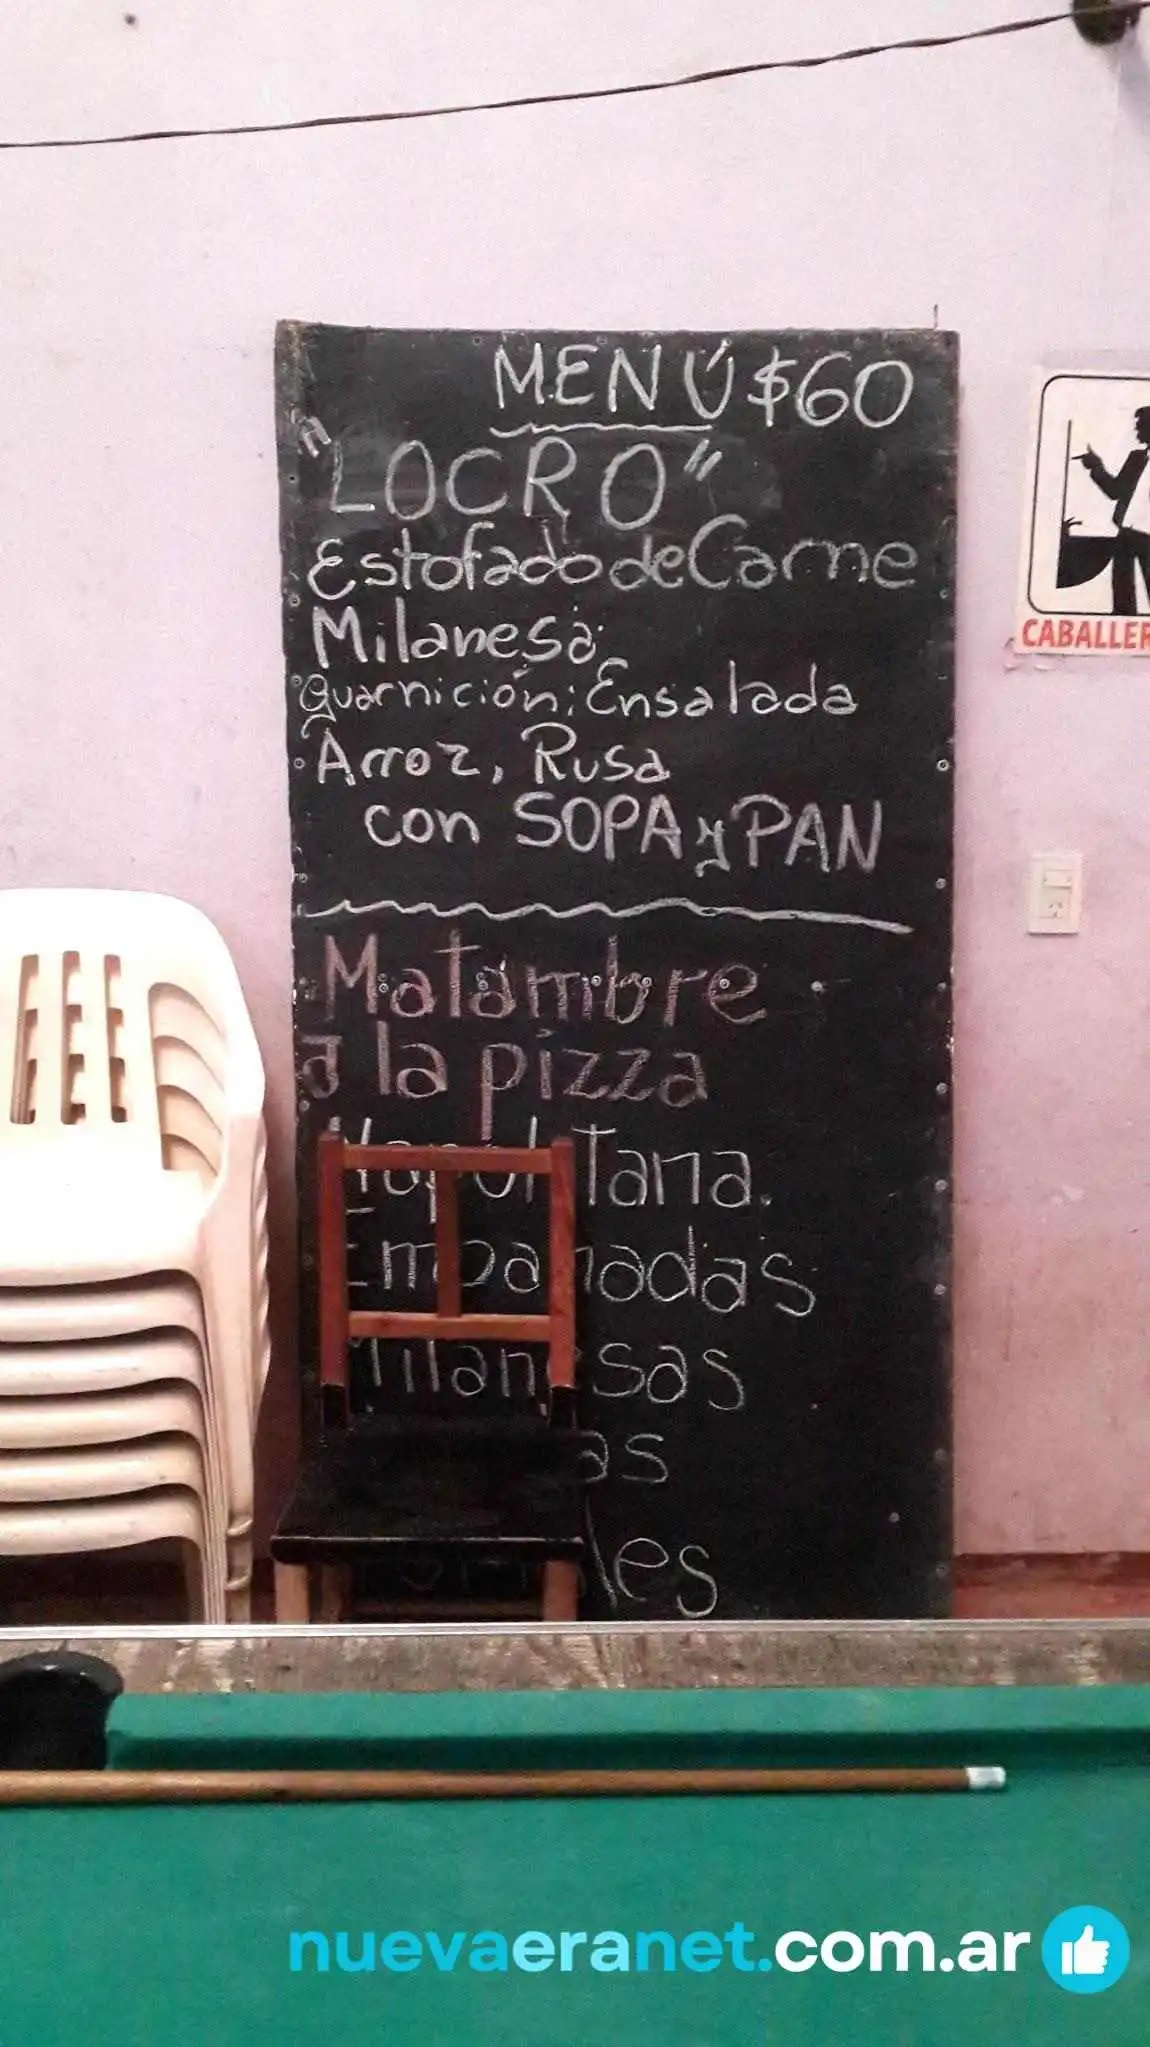 MENÚ $60
"LOCRO"
Estofado de Carne
Milanesa
Guarnición: Ensalada
Arroz, Rusa
con SOPA y PAN
Matambre
a la pizza
Napolitana.
Empanadas
Milanesas
CABALLER
nuevaeranet.com.ar